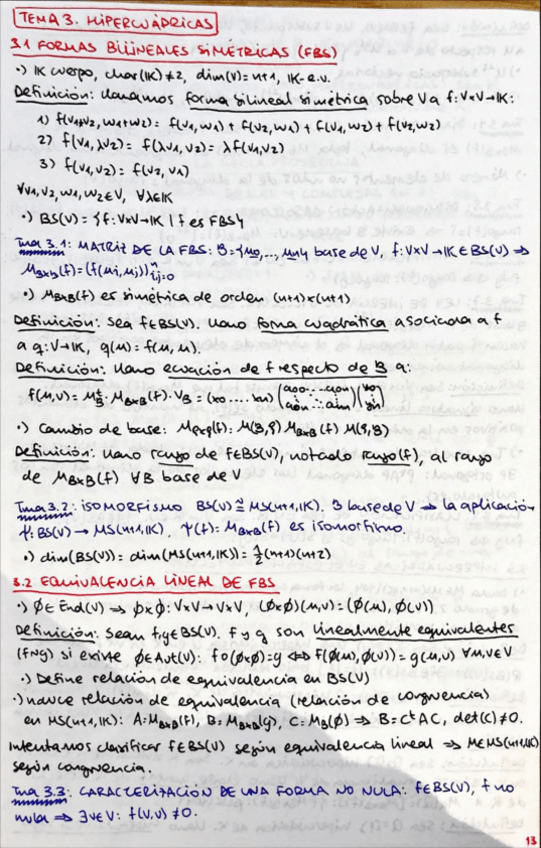 TEMA 3. HIPERCUÁDRICAS
3.1 FORMAS BILINEALES SIMÉTRICAS (FBS)
·) IK cuerpo, char(IK)≠2, dim(V)=n+1, IK-e.v.
Definición: Llamamos forma bilineal simétrica sobre V a f: V×V→IK:
1) f(v1+v2, w1+w2) = f(v1,w1) + f(v2,w1) + f(v1,w2) + f(v2,w2)
2) f(v1, λv2) = f(λv1, v2) = λf(v1,v2)
3) f(v1,v2) = f(v2,v1)
∀v1,v2,w1,w2∈V, ∀λ∈IK
·) BS(V) = {f: V×V→IK | f es FBS}
Tma 3.1: MATRIZ DE LA FBS: B={μ0,..., μn} base de V, f: V×V→IK∈BS(V) ⇒
MB×B(f)=(f(μi,μj))ⁿi,j=0
·) MB×B(f) es simétrica de orden (n+1)×(n+1)
Definición: Sea f∈BS(V). Llamo forma cuadrática asociada a f
a q: V→IK, q(μ) = f(μ,μ).
Definición: Llamo ecuación de f respecto de B a:
f(μ,v) = μᵗB · MB×B(f) · vB = (x0 ... xn) (a00 ... a0n ⋱ a0n ... ann) (y0 ⋮ yn)
·) Cambio de base: Mβ×β(f) = M(B,β) MB×B(f) M(β,B)
Definición: Llamo rango de f∈BS(V), notado rango(f), al rango
de MB×B(f) ∀B base de V
Tma 3.2: ISOMORFISMO BS(V) ≅ MS(n+1,IK). B base de V ⇒ la aplicación
ψ: BS(V) → MS(n+1,IK), ψ(f) = MB×B(f) es isomorfismo.
·) dim(BS(V)) = dim(MS(n+1,IK)) = ½(n+1)(n+2)
3.2 EQUIVALENCIA LINEAL DE FBS
·) ϕ∈End(V) ⇒ ϕ×ϕ: V×V→V×V, (ϕ×ϕ)(μ,v) = (ϕ(μ), ϕ(v))
Definición: Sean f,g∈BS(V). f y g son linealmente equivalentes
(f∼g) si existe ϕ∈Aut(V): f∘(ϕ×ϕ)=g ⇔ f(ϕ(μ),ϕ(v)) = g(μ,v) ∀μ,v∈V
·) Define relación de equivalencia en BS(V)
·) Induce relación de equivalencia (relación de congruencia)
en MS(n+1,IK): A=MB×B(f), B=MB×B(g), C=MB(ϕ) ⇒ B=CᵗAC, det(C)≠0.
Intentamos clasificar f∈BS(V) según equivalencia lineal ⇒ M∈MS(n+1,IK)
según congruencia.
Tma 3.3: CARACTERIZACIÓN DE UNA FORMA NO NULA: f∈BS(V), f no
nula ⇒ ∃v∈V: f(v,v)≠0.
13